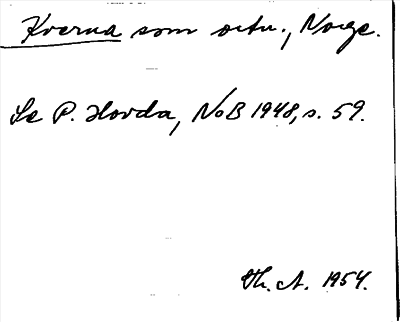 Kverna som ortn., Norge.
Se P. Hovda, NoB 1948, s. 59.
Th. A. 1954.